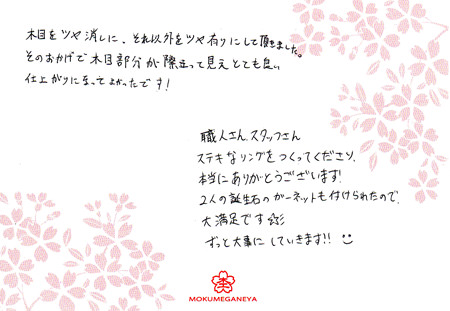 木目をツヤ消しに、それ以外をツヤ有りにして頂きました。
そのおかげで木目部分が際立って見えとても良い
仕上がりになってよかったです!
職人さん、スタッフさん
ステキなリングをつくってくださり、
本当にありがとうございます!
2人の誕生石のガーネットも付けられたので、
大満足です☆彡
ずっと大事にしていきます!!
MOKUMEGANEYA